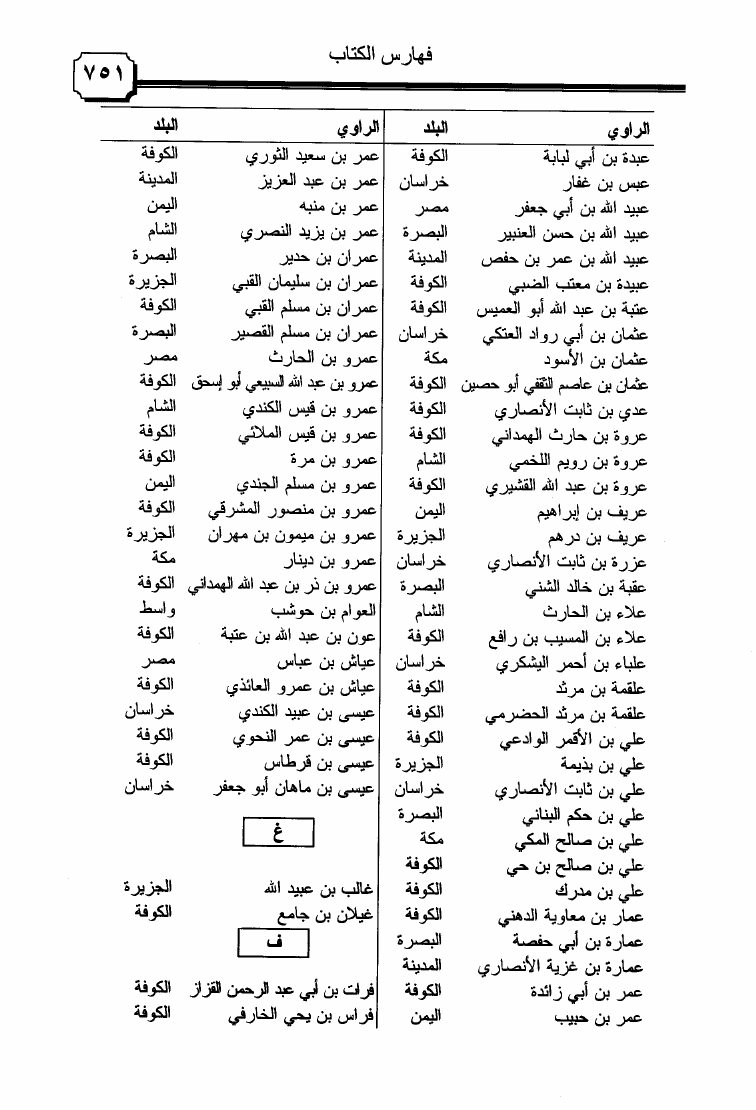 فهارس الكتاب
٧٥١
الراوي البلد
عبدة بن أبي لبابة الكوفة
عبس بن غفار خراسان
عبيد الله بن أبي جعفر مصر
عبيد الله بن حسن العنبير البصرة
عبيد الله بن عمر بن حفص المدينة
عبيدة بن معتب الضبي الكوفة
عتبة بن عبد الله أبو العميس الكوفة
عثمان بن أبي رواد العتكي خراسان
عثمان بن الأسود مكة
عثمان بن عاصم الثقفي أبو حصين الكوفة
عدي بن ثابت الأنصاري الكوفة
عروة بن حارث الهمداني الكوفة
عروة بن رويم اللخمي الشام
عروة بن عبد الله القشيري الكوفة
عريف بن إبراهيم اليمن
عريف بن درهم الجزيرة
عزرة بن ثابت الأنصاري خراسان
عقبة بن خالد الشني البصرة
علاء بن الحارث الشام
علاء بن المسيب بن رافع الكوفة
علباء بن أحمر اليشكري خراسان
علقمة بن مرثد الكوفة
علقمة بن مرثد الحضرمي الكوفة
علي بن الأقمر الوادعي الكوفة
علي بن بذيمة الجزيرة
علي بن ثابت الأنصاري خراسان
علي بن حكم البناني البصرة
علي بن صالح المكي مكة
علي بن صالح بن حي الكوفة
علي بن مدرك الكوفة
عمار بن معاوية الدهني الكوفة
عمارة بن أبي حفصة البصرة
عمارة بن غزية الأنصاري المدينة
عمر بن أبي زائدة الكوفة
عمر بن حبيب اليمن
الراوي البلد
عمر بن سعيد الثوري الكوفة
عمر بن عبد العزيز المدينة
عمر بن منبه اليمن
عمر بن يزيد النصري الشام
عمران بن حدير البصرة
عمران بن سليمان القبي الجزيرة
عمران بن مسلم القبي الكوفة
عمران بن مسلم القصير البصرة
عمرو بن الحارث مصر
عمرو بن عبد الله السبيعي أبو إسحق الكوفة
عمرو بن قيس الكندي الشام
عمرو بن قيس الملائي الكوفة
عمرو بن مرة الكوفة
عمرو بن مسلم الجندي اليمن
عمرو بن منصور المشرقي الكوفة
عمرو بن ميمون بن مهران الجزيرة
عمرو بن دينار مكة
عمرو بن ذر بن عبد الله الهمداني الكوفة
العوام بن حوشب واسط
عون بن عبد الله بن عتبة الكوفة
عياش بن عباس مصر
عياش بن عمرو العائذي الكوفة
عيسى بن عبيد الكندي خراسان
عيسى بن عمر النحوي الكوفة
عيسى بن قرطاس الكوفة
عيسى بن ماهان أبو جعفر خراسان
غ
غالب بن عبيد الله الجزيرة
غيلان بن جامع الكوفة
ف
فرات بن أبي عبد الرحمن القزاز الكوفة
فراس بن يحي الخارفي الكوفة